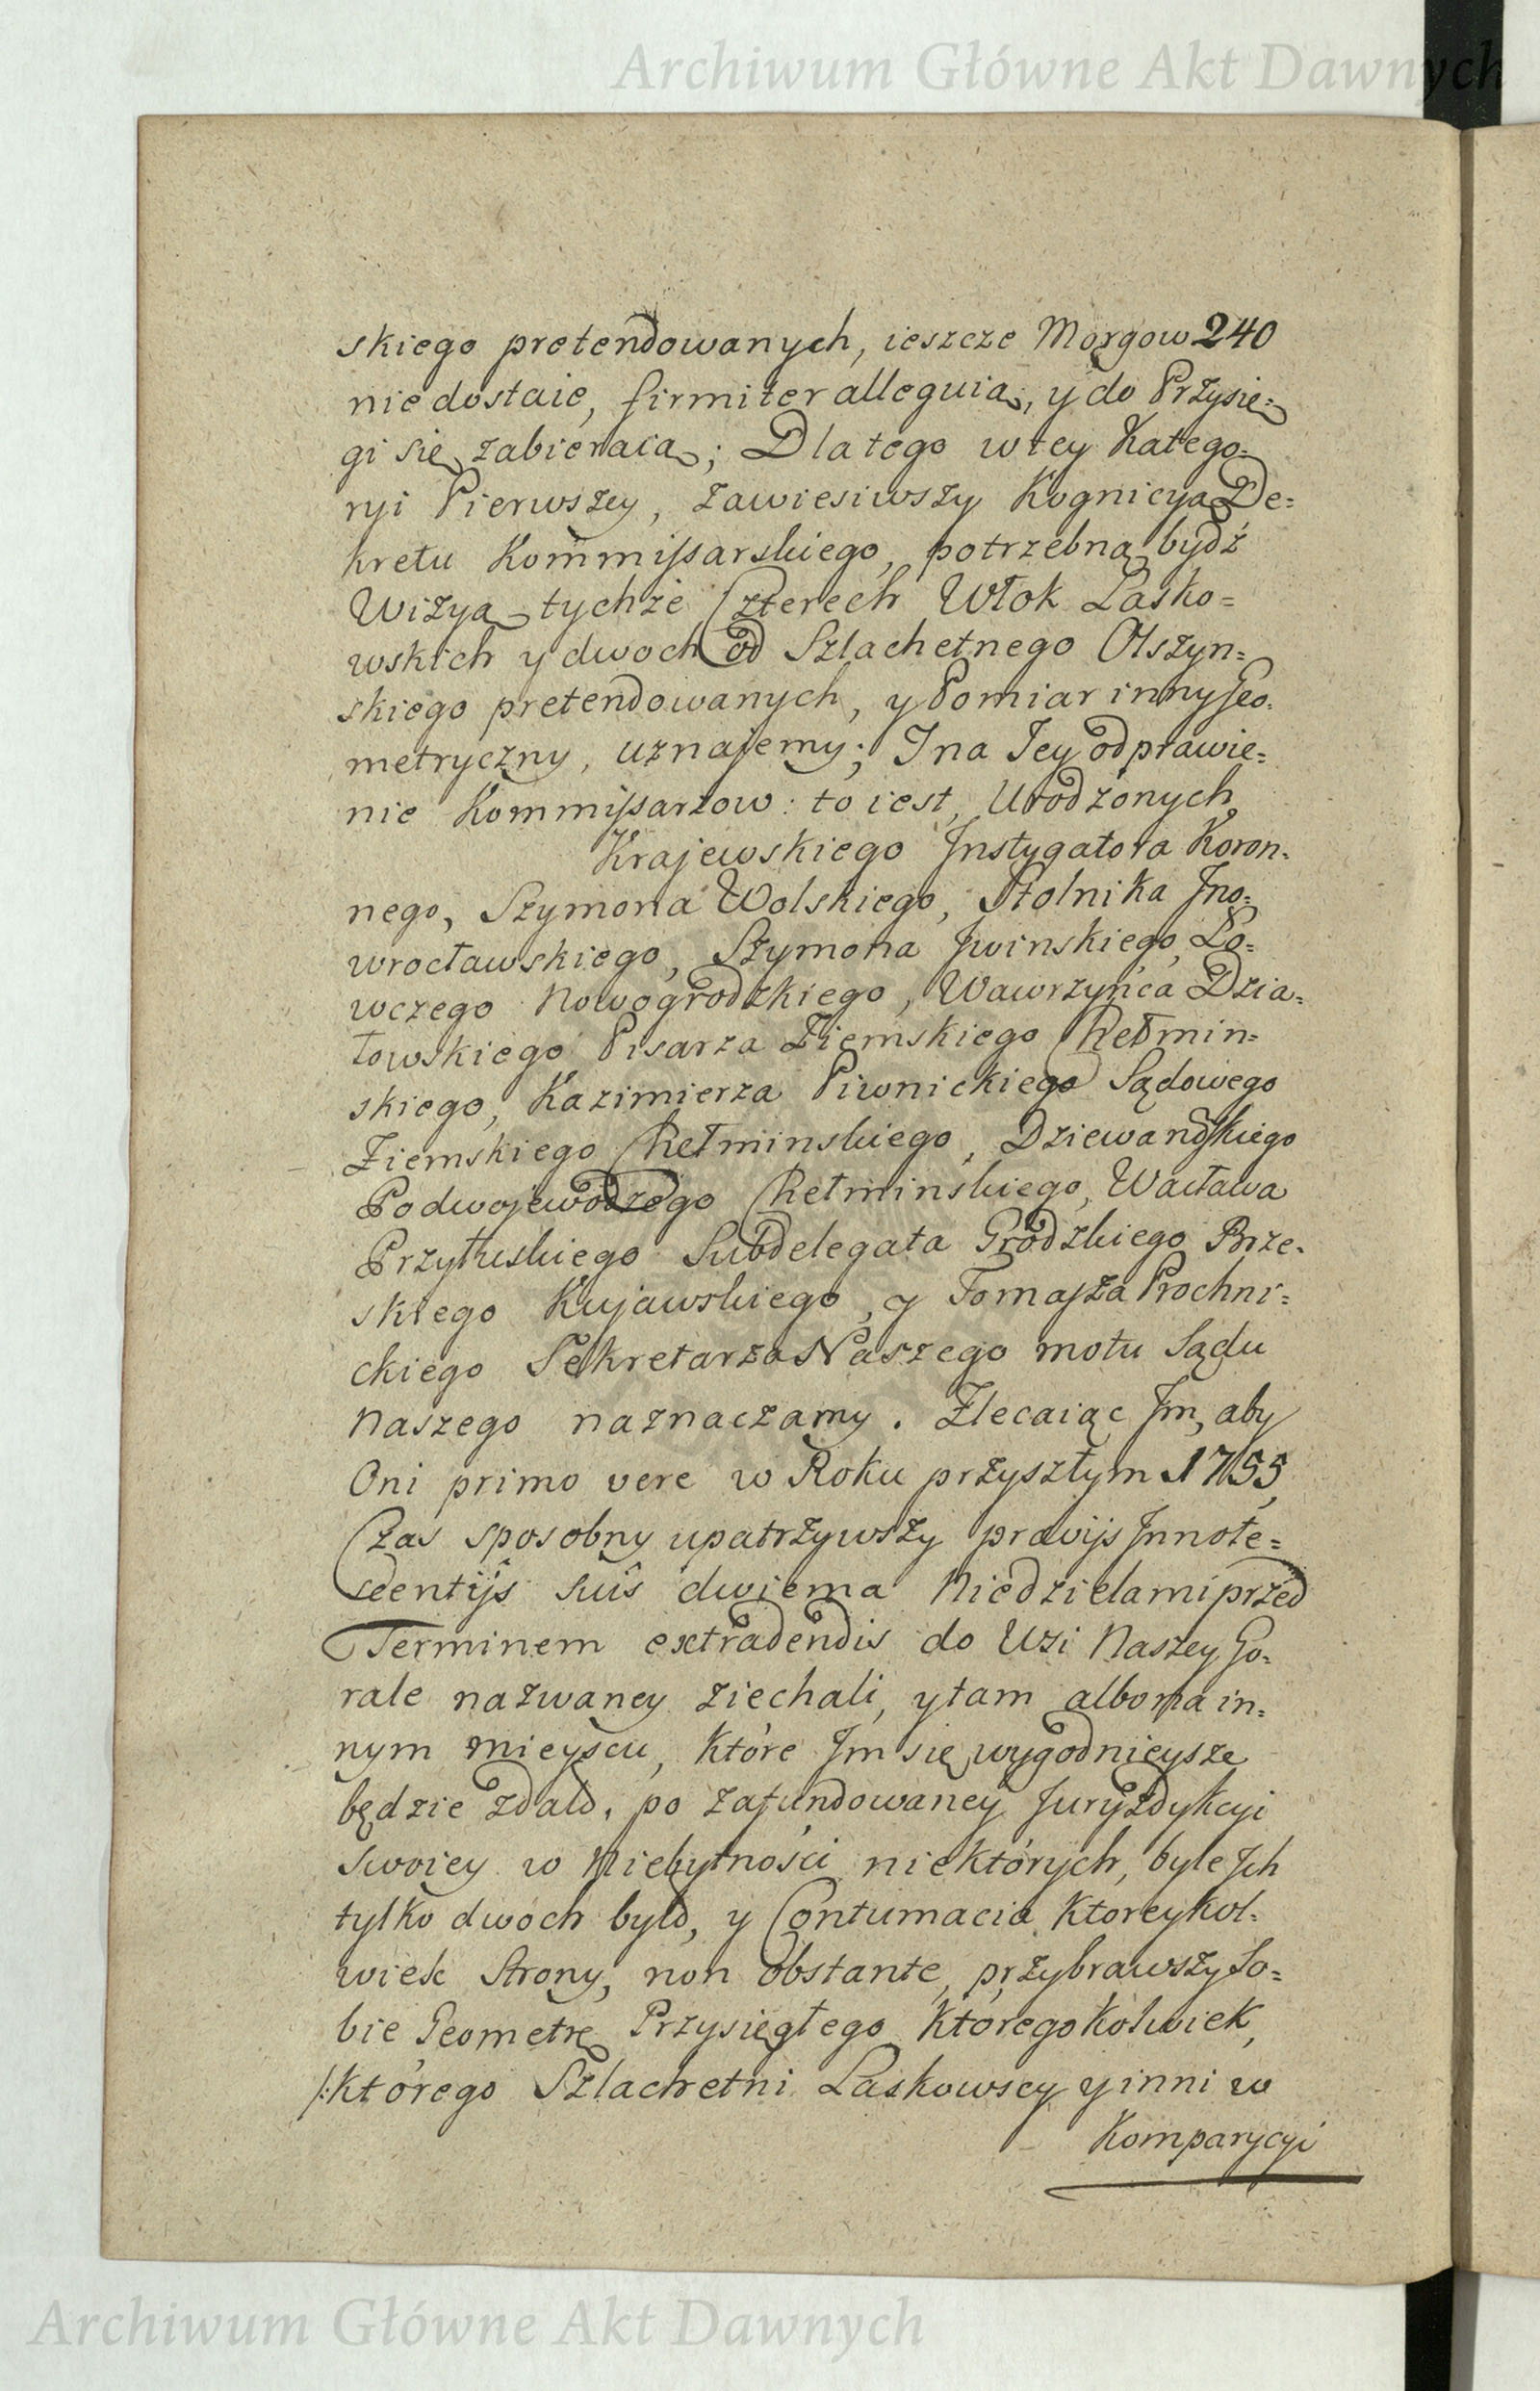 Archiwum Główne Akt Dawnych
skiego pretendowanych, ieszcze Morgow 240
nie dostaie, firmiter alleguią, y do Przysię=
gi się zabieraią; Dla tego w tey Katego=
ryi Pierwszey, zawiesiwszy Kognicyą De=
kretu Kommissarskiego, potrzebną bydź
Wizyą tychże Czterech Włok Lasko=
wskich y dwoch od Szlachetnego Olszyn=
skiego pretendowanych, y Pomiar inny Geo=
metryczny, uznajemy; I na Jey odprawie=
nie Kommissarzow: to iest, Urodzonych
Krajewskiego Instygatora Koron=
nego, Szymona Wolskiego, Stolnika Ino=
wrocławskiego, Szymona Iwinskiego, Ło=
wczego Nowogrodzkiego, Wawrzyńca Dzia=
łowskiego Pisarza Ziemskiego Chełmin=
skiego, Kazimierza Piwnickiego Sądowego
Ziemskiego Chełminskiego, Dziewanowskiego
Podwojewodzego Chełminskiego, Wacława
Przyłuskiego Subdelegata Grodzkiego Brze=
skiego Kujawskiego, y Tomasza Prochni=
ckiego Sekretarza Naszego motu Sądu
Naszego naznaczamy. Zlecaiąc Im, aby
Oni primo vere w Roku przyszłym 1755,
Czas sposobny upatrzywszy praviis Innote=
scentijs suis dwiema Niedzielami przed
Terminem extradendis do Wsi Naszey Go=
rale nazwaney ziechali, y tam albo na in=
nym mieyscu, które Im się wygodnieysze
będzie zdało, po zafundowaney Juryzdykcyi
Swoiey w Niebytności niektórych, byle Ich
tylko dwoch było, y Contumacia ktoreykol=
wiek Strony, non obstante, przybrawszy So=
bie Geometrę Przysięgłego któregokolwiek,
/:którego Szlachetni Laskowscy y inni w
Komparycyi
Archiwum Główne Akt Dawnych